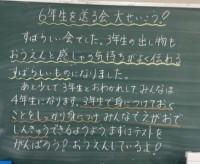 6年生を送る会 大せいこう!
すばらしい会でした。3年生の出し物も
おうえんと感しゃの気持ちがよく伝わる
すばらしいものになりました。
あと少しで3年生とおわかれして みんなは
4年生になります。3年生で身につけておく
ことをしっかり身につけ みんなでえがおで
しんきゅうできるよう まずはテストを
がんばろう! おうえんしているよ!